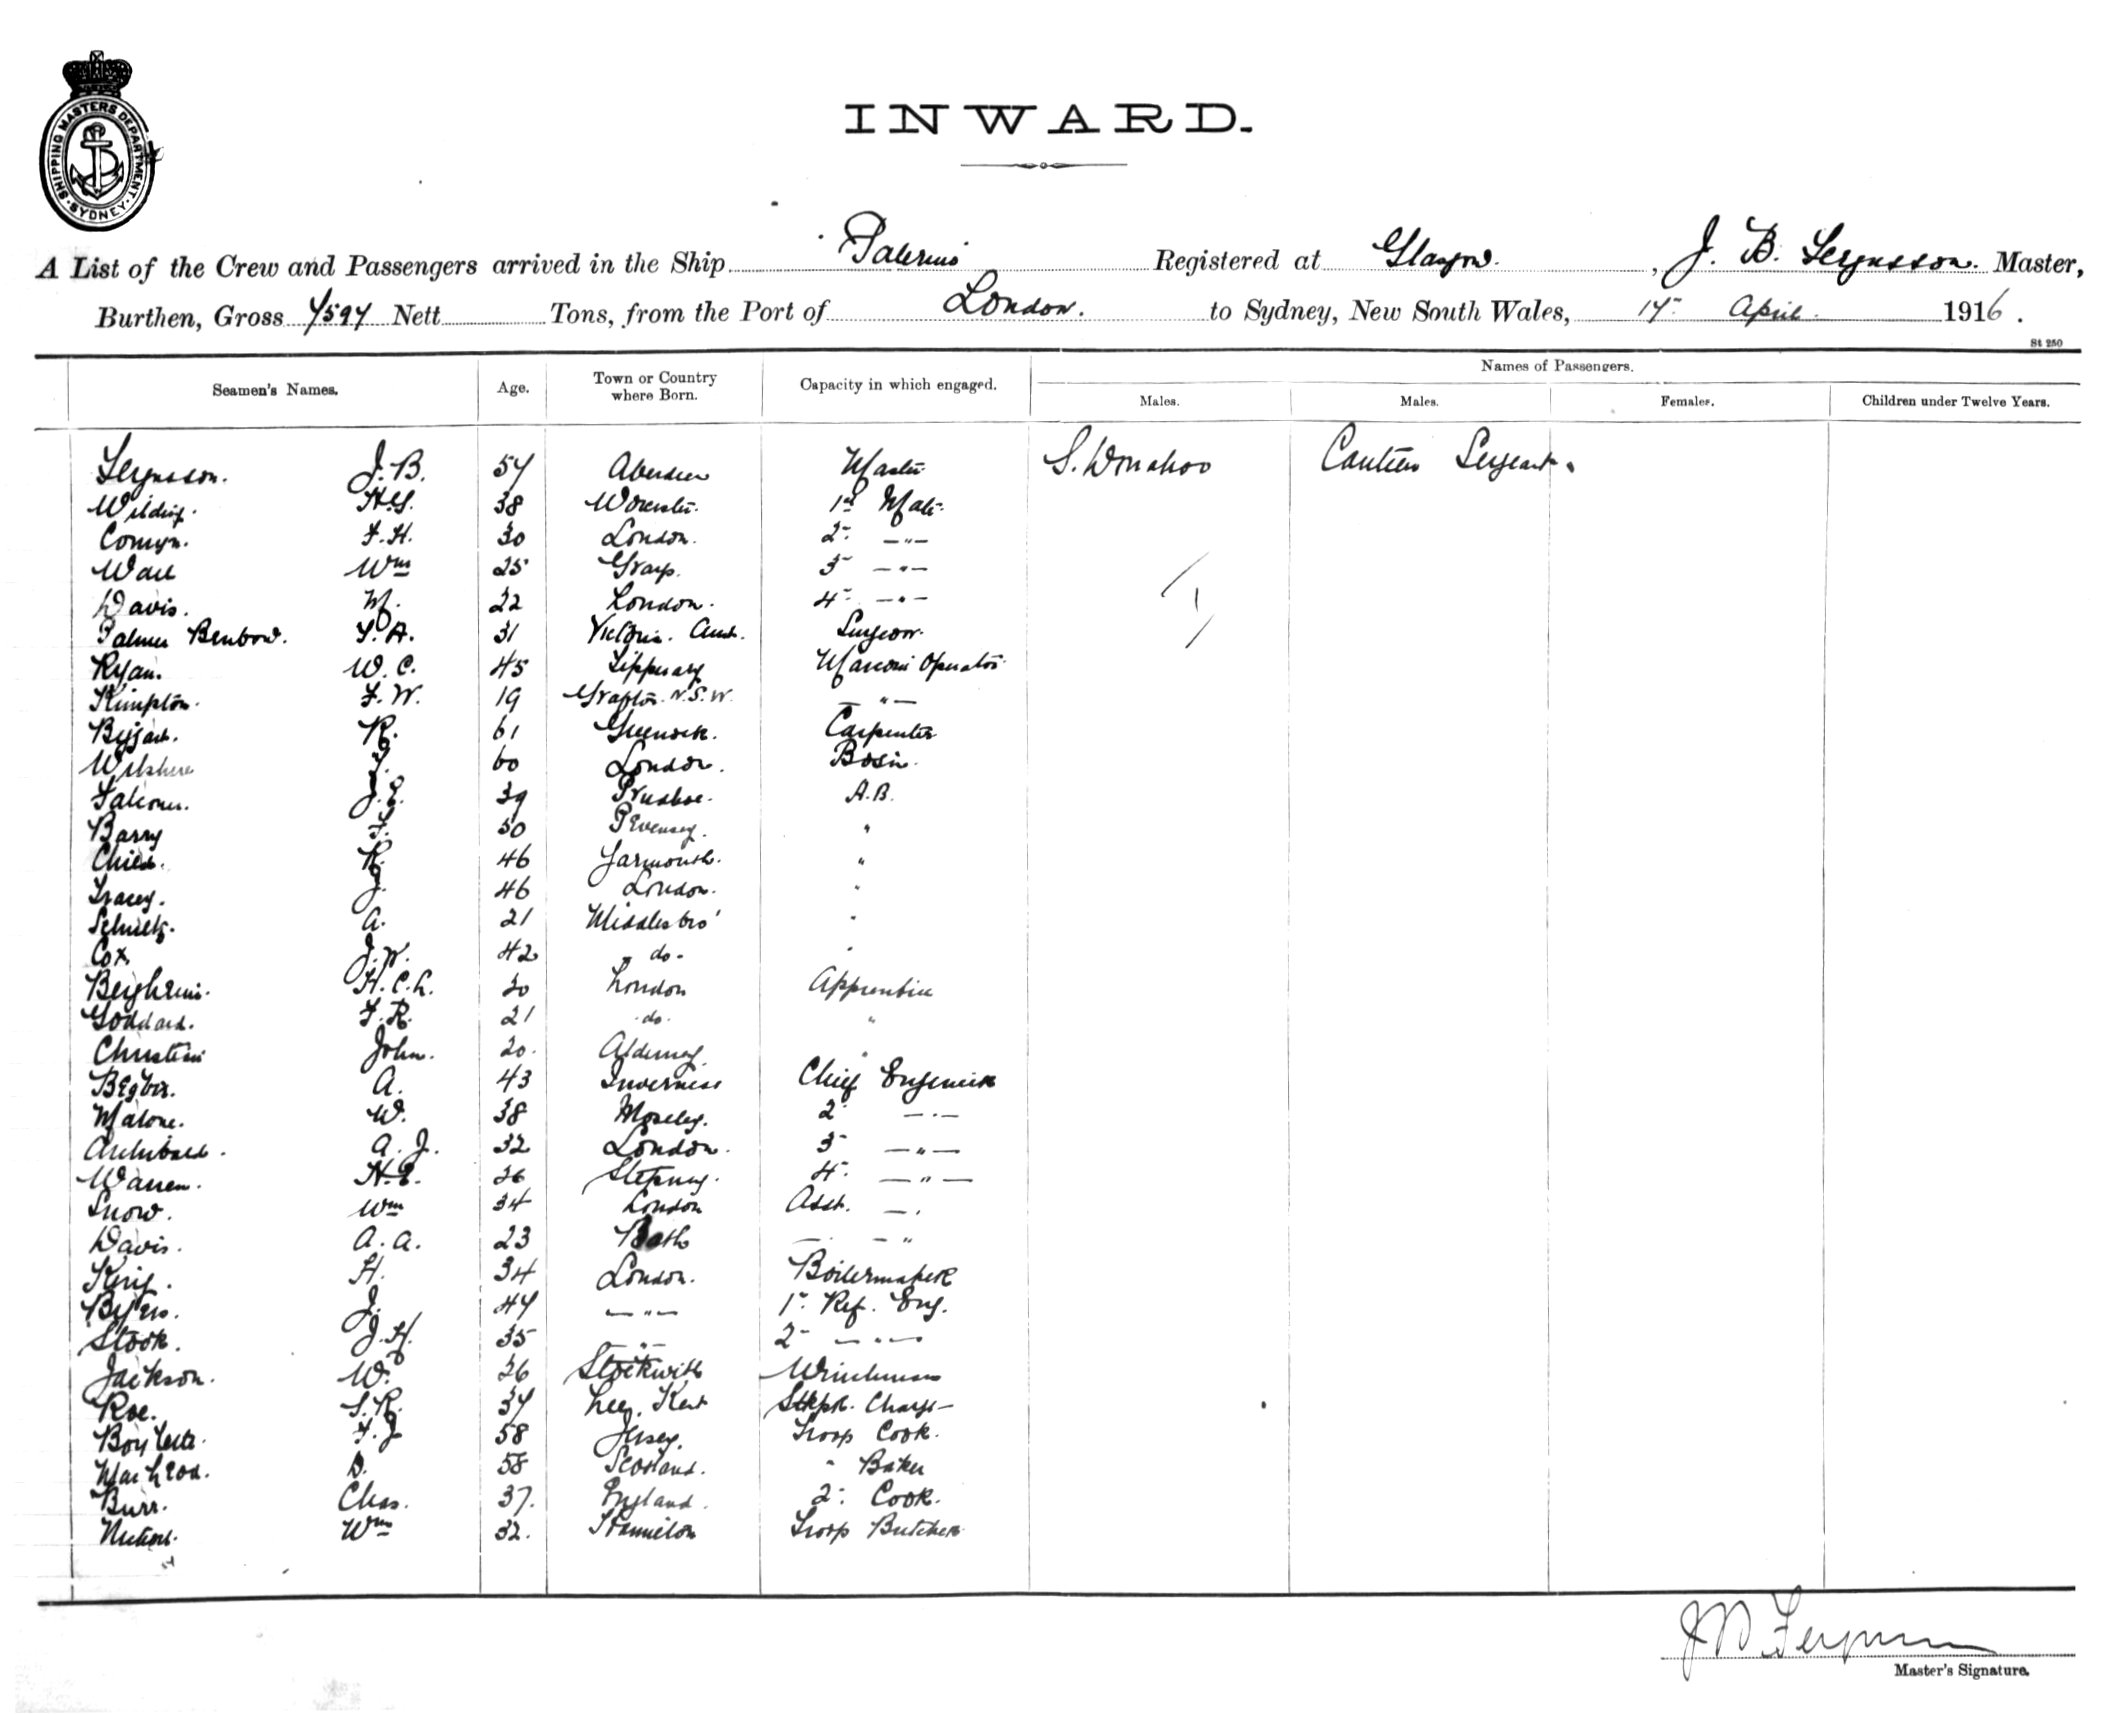 SHIPPING MASTERS DEPARTMENT · SYDNEY ·
INWARD.
A List of the Crew and Passengers arrived in the Ship Palermo Registered at Glasgow. , J. B. Fergusson. Master,
Burthen, Gross 7597 Nett Tons, from the Port of London. to Sydney, New South Wales, 17 April 1916.
St 250
Seamen's Names. Age. Town or Country where Born. Capacity in which engaged. Names of Passengers.
Males. Males. Females. Children under Twelve Years.
Fergusson. J.B. 57 Aberdeen Master S. Donahoo Canteen Sergeant.
Wilding. 38 Worcester. 1st Mate
Comyn. F.H. 30 London. 2" —"—
Wall Wm 25 Grays. 3 —"—
Davis. M. 22 London. 4" —"—
Palmer Benbow. 31 Victoria. Aust. Surgeon.
Ryan. W.C. 45 Tipperary Marconi Operator
Kimpton. F.W. 19 Grafton N.S.W. —"—
R. 61 Greenock. Carpenter
Wilshere 60 London. Bosin.
Falconer. J.E. 39 Prudhoe. A.B.
Barry F. 50 Pevensey. "
Child. R. 46 Yarmouth. "
Tracey. J. 46 London. "
Schultz. A. 21 Middlesbro' "
Cox J.W. 42 " do - "
H.C.L. 20 London Apprentice
Goddard. F.R. 21 do. "
Christin John. 20. Alderney "
Begbie. A. 43 Inverness Chief Engineer
Malone. W. 38 Moseley. 2" —"—
Archibald. A.J. 32 London. 3 —"—
Warren. H.E. 26 Stepney. 4" —"—
Snow. Wm 34 London Asst. —"
Davis. A.A. 23 Bath — — "
King. H. 34 London. Boilermaker
Byers. J. 47 —"— 1" Ref. Eng.
Stook. J.H. 35 —"— 2" —"—
Jackson. W. 26 Stockwith Winchman
Roe. S.R. 37 Lee, Kent Stkpr. Charge
F.J 58 Jersey. Troop Cook.
MacLeod. D. 58 Scotland. " Baker
Burr. Chas. 37. England. 2" Cook.
Wm 32. Hamilton Troop Butcher
J B Fergusson
Master's Signature.